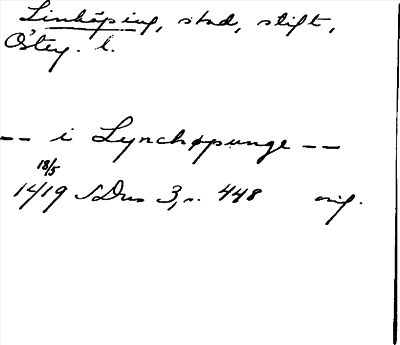 Linköping, stad, stift,
Östg. l.
-- i Lynchøpunge --
18/5
1419 SDns 3, s. 448 orig.